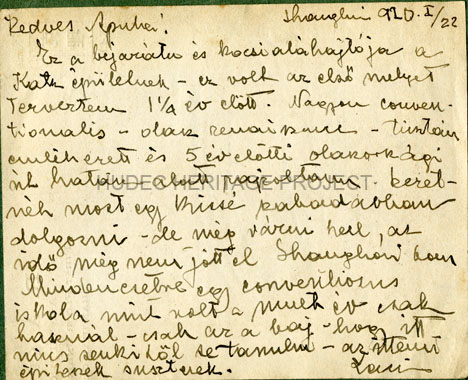 Shanghai 920. I/22
Kedves Apuka!
Ez a bejáratu és kocsialáhajtója a
Katz épületnek - ez volt az első melyet
terveztem 1¼ év előtt. Nagyon conven-
tionalis - olasz renaissance - tisztán
emlékezet és 5 év előtti olaszországi
út hatása alatt rajzoltam. Szeret-
nék most egy kissé szabadabban
dolgozni - de még várni kell, az
idő még nem jött el Shanghaiban
Mindenesetre egy conventiosus
iskola mint volt a mult év csak
használ - csak az a baj - hogy itt
nincs senkitől se tanulni - az itteni
építészek suszterek. Laci
HUDEC HERITAGE PROJECT